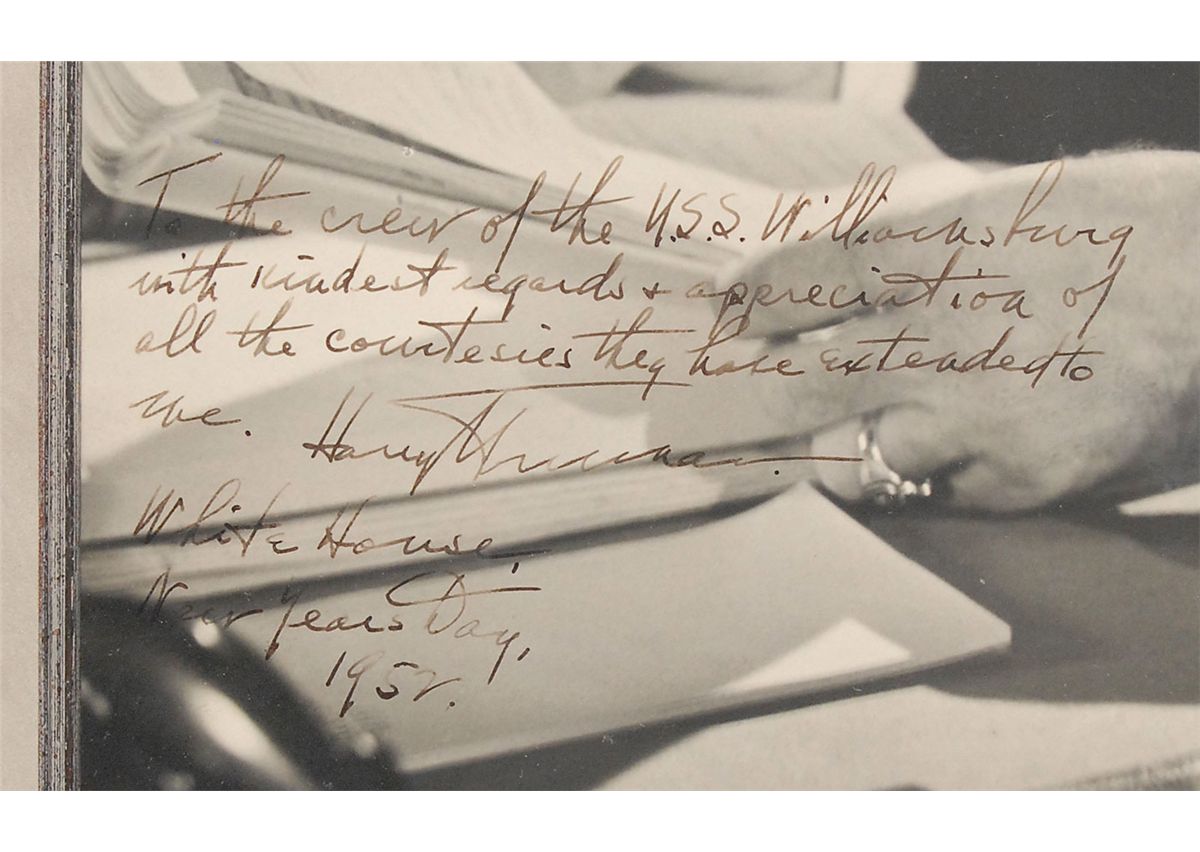 To the crew of the U.S.S. Williamsburg
with kindest regards + appreciation of
all the courtesies they have extended to
me. Harry Truman.
White House,
New Years Day,
1952.